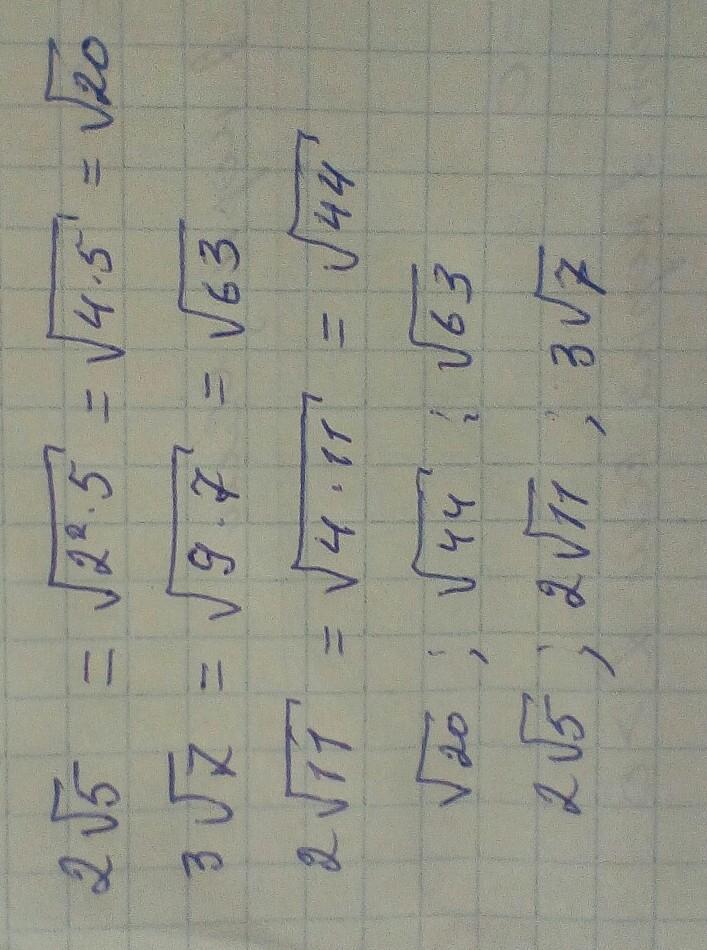 2√5 = √2²·5 = √4·5 = √20
3√7 = √9·7 = √63
2√11 = √4·11 = √44
√20 ; √44 ; √63
2√5 ; 2√11 ; 3√7